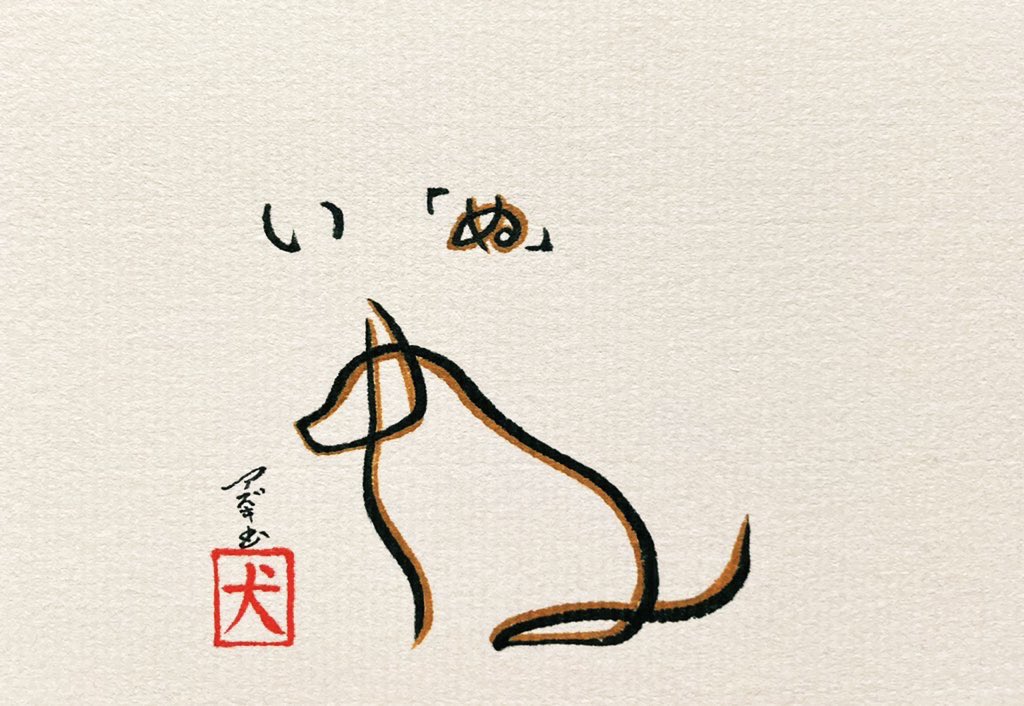 い「ぬ」
アズキ
犬